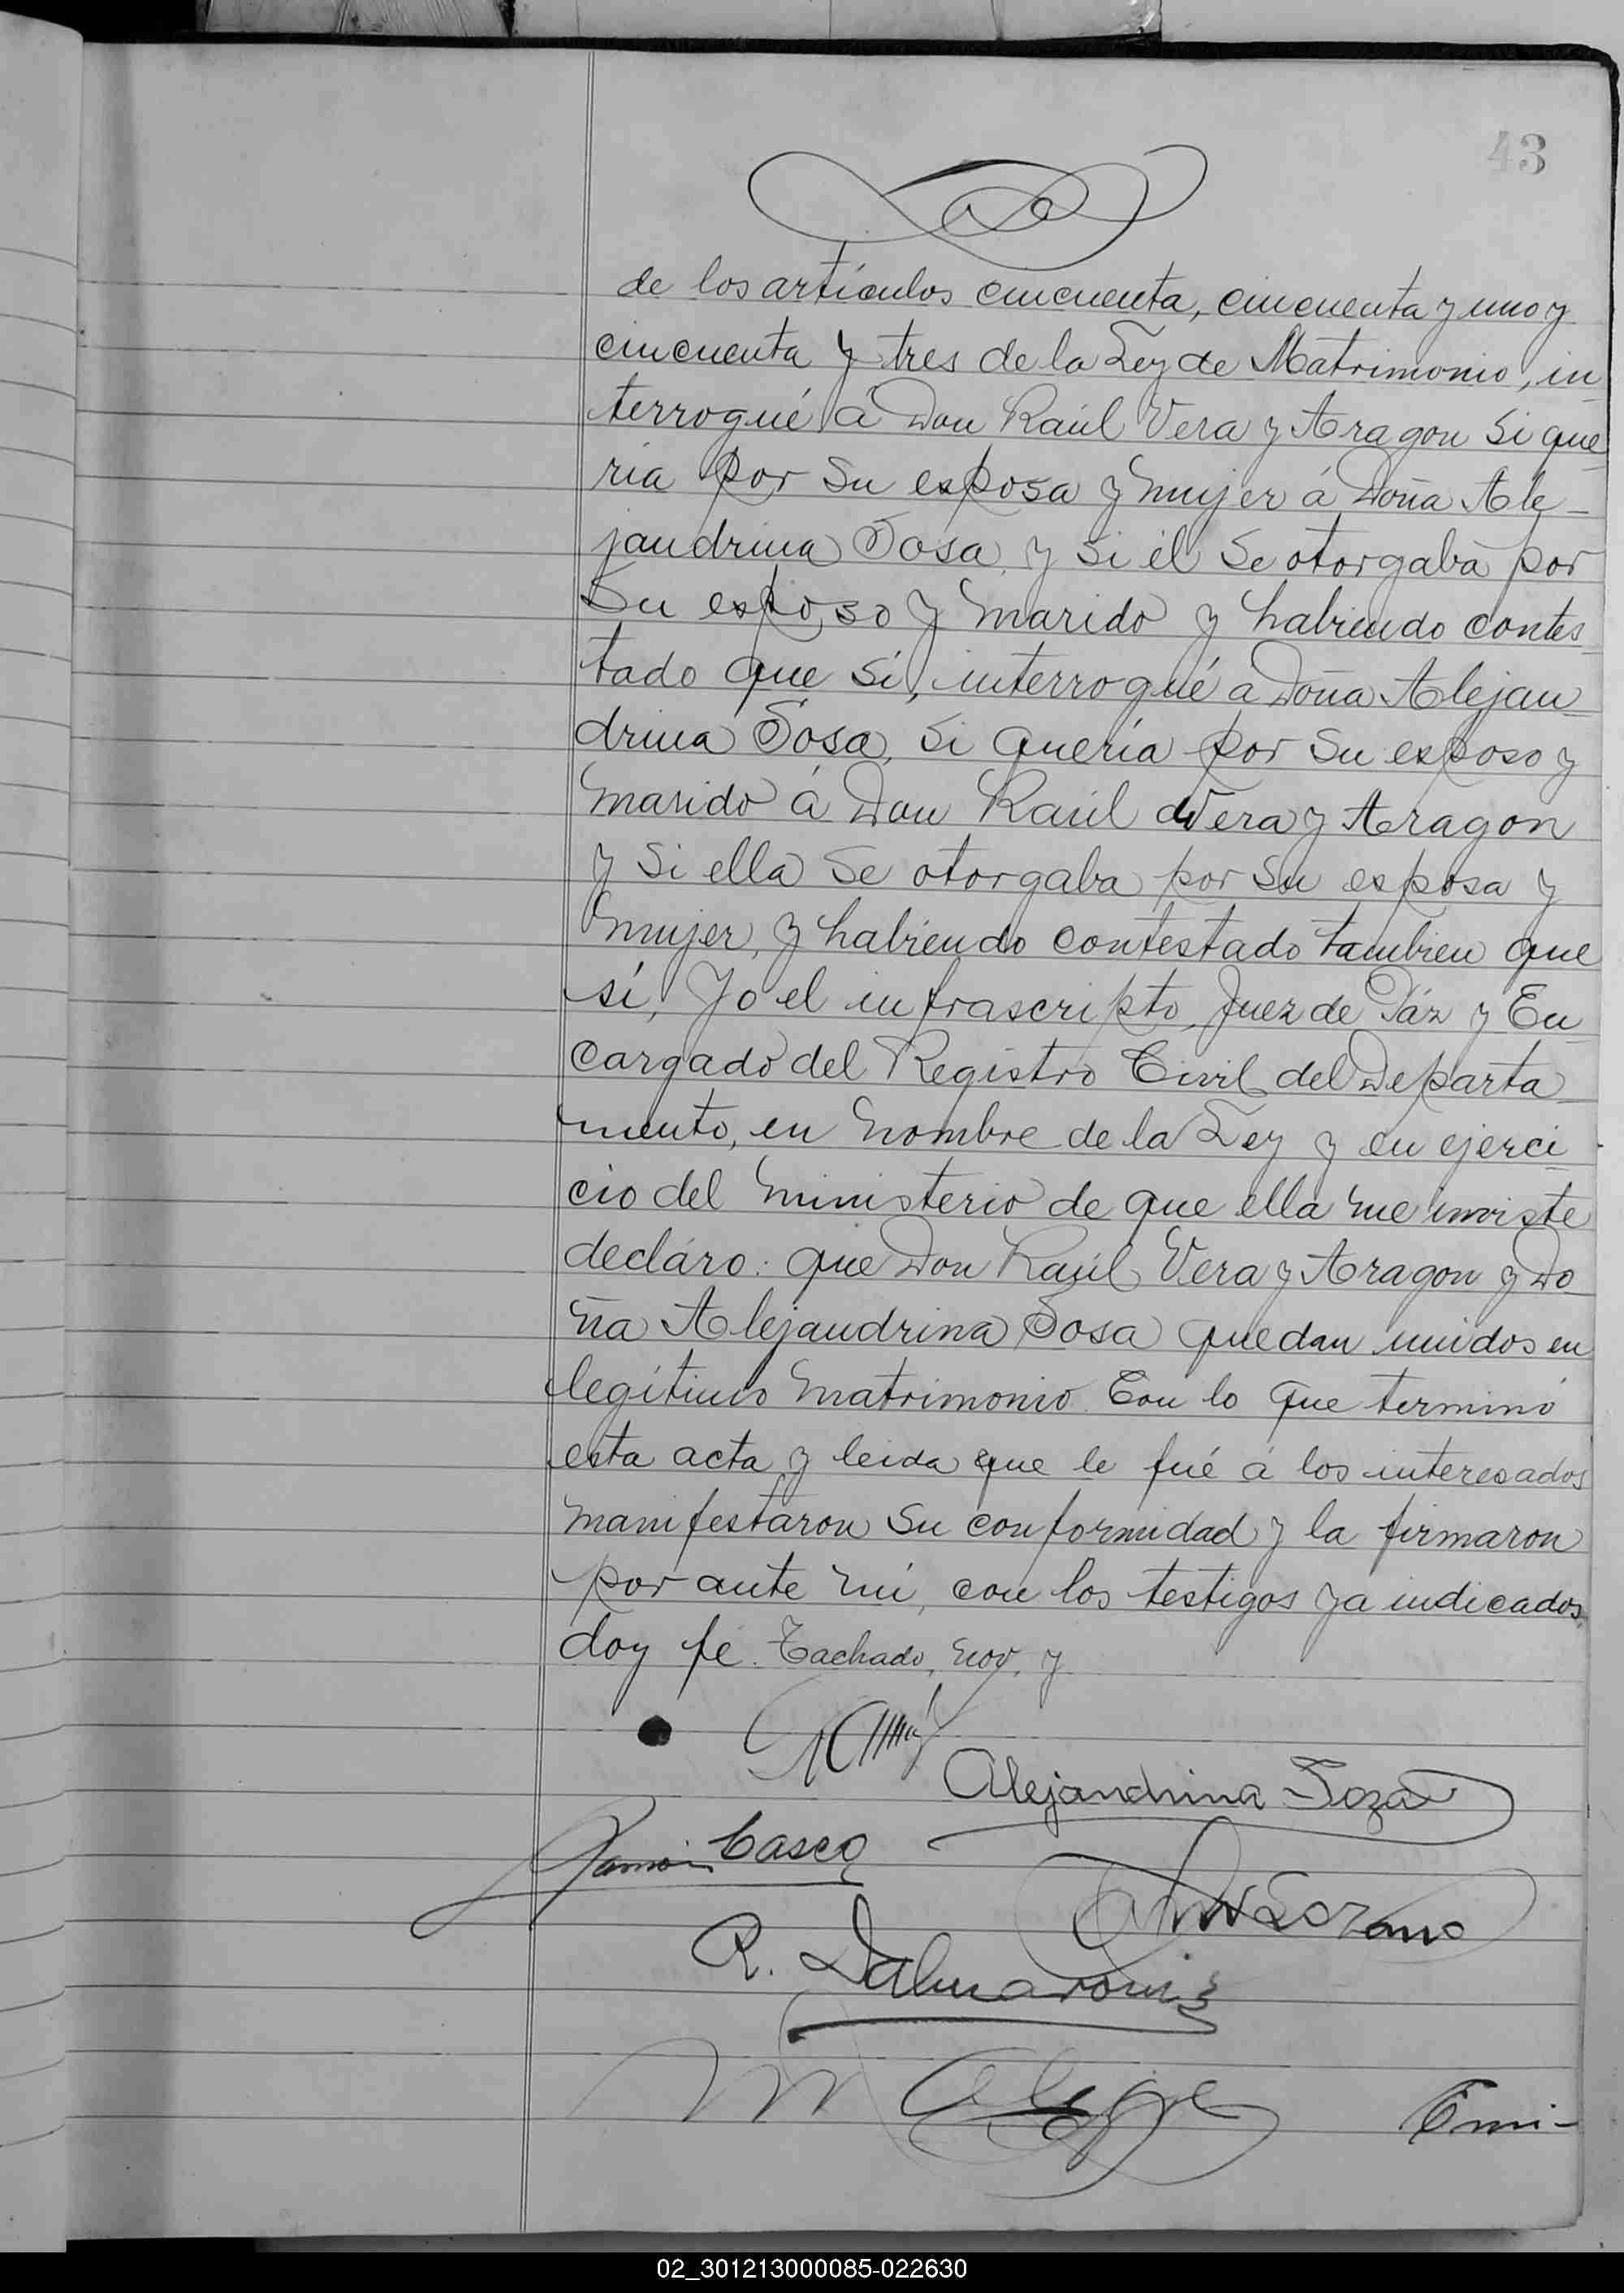 43
de los artículos cincuenta, cincuenta y uno y
cincuenta y tres de la Ley de Matrimonio, in
terrogué á Don Raúl Vera y Aragon si que
ría por su esposa y mujer á Doña Ale-
jandrina Sosa, y si él se otorgaba por
su esposo y marido y habiendo contes
tado que sí, interrogué a Doña Alejan
drina Sosa, si quería por su esposo y
marido á Don Raúl Vera y Aragon
y si ella se otorgaba por su esposa y
mujer, y habiendo contestado tambien que
sí, Yo el infrascripto, Juez de Páz y En
cargado del Registro Civil del Departa
mento, en nombre de la Ley y en ejerci
cio del ministerio de que ella me inviste
decláro: que Don Raúl Vera y Aragon y Do
ña Alejandrina Sosa quedan unidos en
legítimo matrimonio. Con lo que terminó
esta acta y leida que le fué á los interesados
manifestaron su conformidad y la firmaron
por ante mi, con los testigos ya indicados,
doy fé. Tachado, nov. y
Alejandrina Soza
Ramon Casco
Lozano
R. Dalmaroni
Emi-
02_301213000085-022630